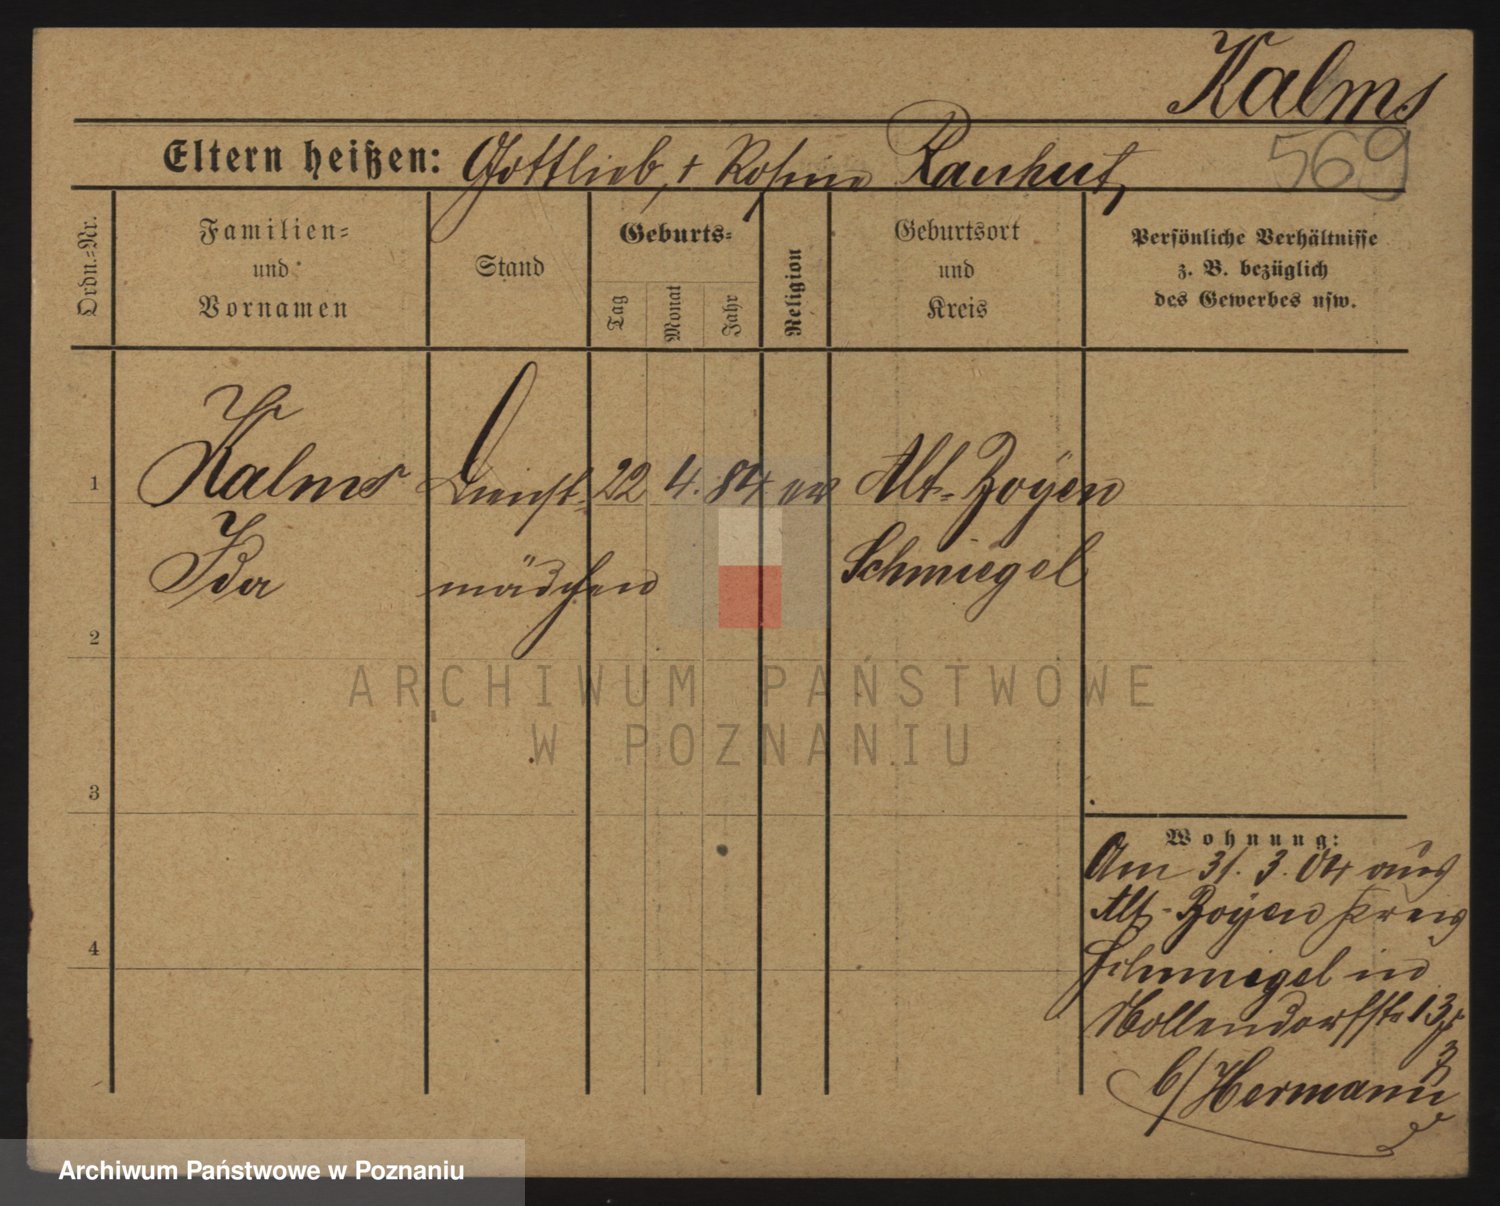 Kalms
569
Eltern heißen: Gottlieb, + Rosine Rauhut,
Ordn.-Nr.
Familien-
und
Vornamen
Stand
Geburts-
Tag
Monat
Jahr
Religion
Geburtsort
und
Kreis
Persönliche Verhältnisse
z. B. bezüglich
des Gewerbes usw.
1 Kalms Dienst- 22 4. 84 ev Alt-Boyen
Ida mädchen Schmiegel
2
ARCHIWUM PAŃSTWOWE
W POZNANIU
3
Wohnung:
Am 31. 3. 04 aus
Alt-Boyen Kreis
4
Schmiegel in
Nollendorfstr 13
b/ Hermann
Archiwum Państwowe w Poznaniu